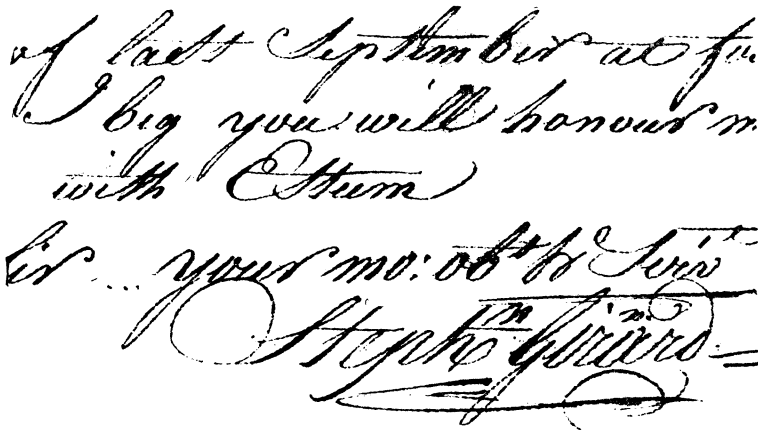 of last September at
I beg you will honour
with Esteem
Sir ... your mo: obt hr Serv
Stephn Girard